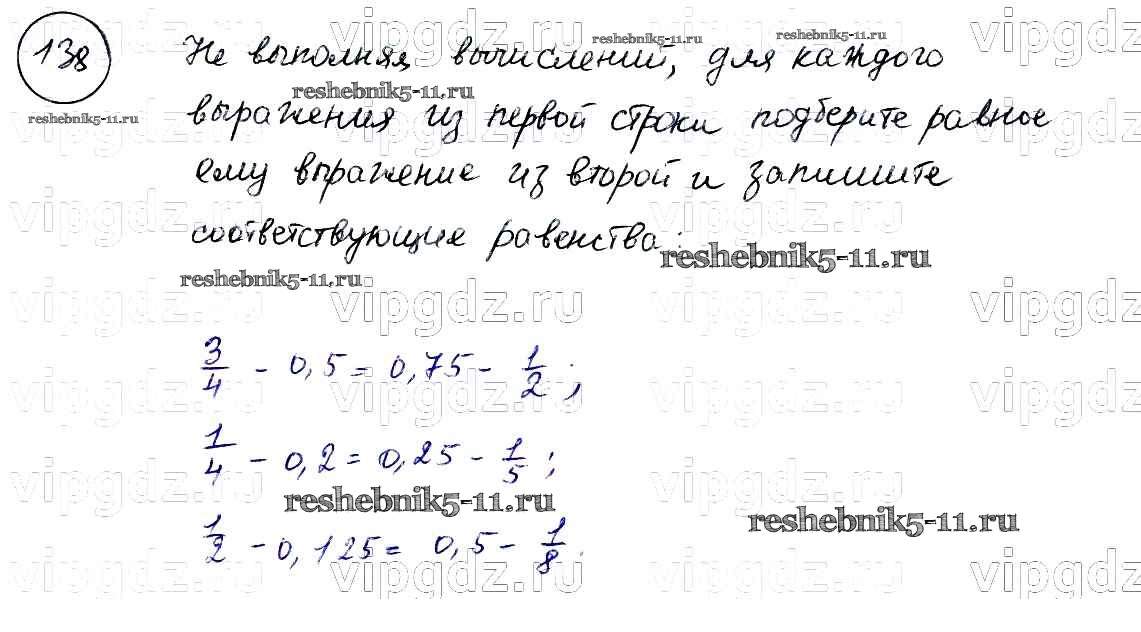 138
Не выполняя вычислений, для каждого
выражения из первой строки подберите равное
ему выражение из второй и запишите
соответствующие равенства:
3/4 - 0,5 = 0,75 - 1/2;
1/4 - 0,2 = 0,25 - 1/5;
1/2 - 0,125 = 0,5 - 1/8.
reshebnik5-11.ru
vipgdz.ru